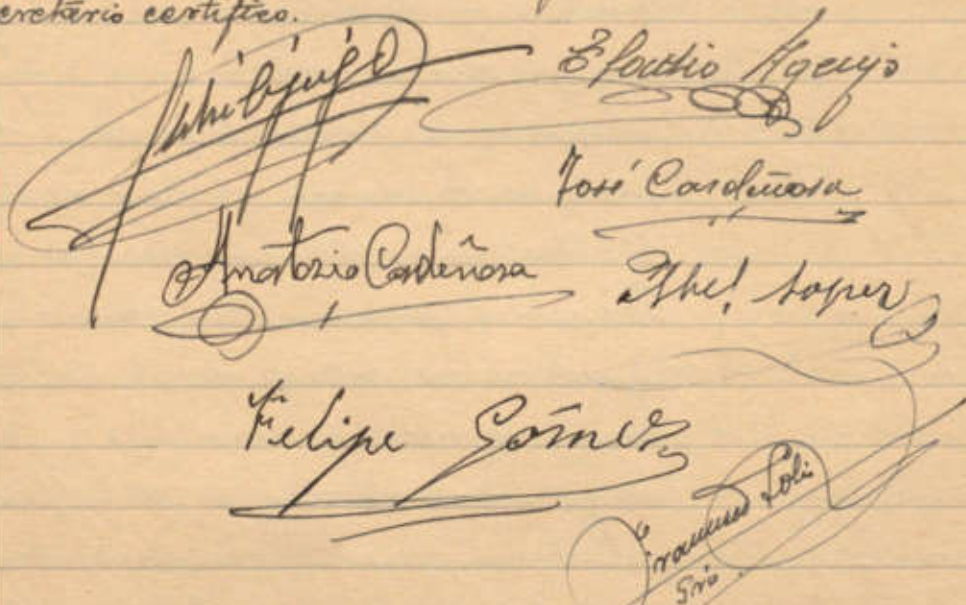 secretario certifico.
Agenjo
José Cardeñosa
Anastasio Cardeñosa
Abel Lopez
Felipe Gómez
Francisco
Srio